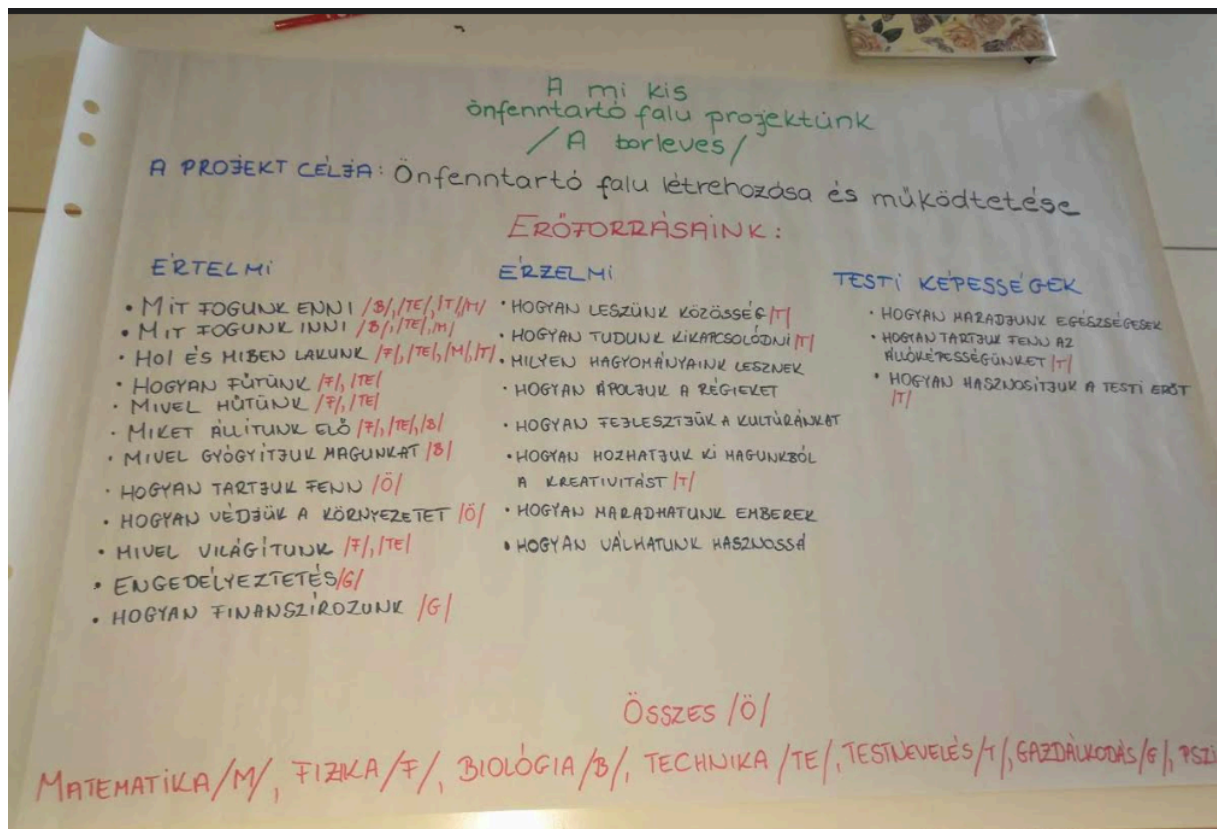 A mi kis
önfenntartó falu projektünk
/A borleves/
A PROJEKT CÉLJA: Önfenntartó falu létrehozása és működtetése
ERŐFORRÁSAINK:
ÉRTELMI
• MIT FOGUNK ENNI /B/,/TE/,/T/,/M/
• MIT FOGUNK INNI /B/,/TE/,/M/
• HOL ÉS MIBEN LAKUNK /F/,/TE/,/M/,/T/
• HOGYAN FŰTÜNK /F/,/TE/
• MIVEL HŰTÜNK /F/,/TE/
• MIKET ÁLLÍTUNK ELŐ /F/,/TE/,/B/
• MIVEL GYÓGYÍTJUK MAGUNKAT /B/
• HOGYAN TARTJUK FENN /Ö/
• HOGYAN VÉDJÜK A KÖRNYEZETET /Ö/
• MIVEL VILÁGÍTUNK /F/,/TE/
• ENGEDÉLYEZTETÉS /G/
• HOGYAN FINANSZÍROZUNK /G/
ÉRZELMI
• HOGYAN LESZÜNK KÖZÖSSÉG /T/
• HOGYAN TUDUNK KIKAPCSOLÓDNI /T/
• MILYEN HAGYOMÁNYAINK LESZNEK
• HOGYAN ÁPOLJUK A RÉGIEKET
• HOGYAN FEJLESZTJÜK A KULTÚRÁNKAT
• HOGYAN HOZHATJUK KI MAGUNKBÓL
A KREATIVITÁST /T/
• HOGYAN MARADHATUNK EMBEREK
• HOGYAN VÁLHATUNK HASZNOSSÁ
TESTI KÉPESSÉGEK
• HOGYAN MARADJUNK EGÉSZSÉGESEK
• HOGYAN TARTJUK FENN AZ
ÁLLÓKÉPESSÉGÜNKET /T/
• HOGYAN HASZNOSÍTJUK A TESTI ERŐT
/T/
ÖSSZES /Ö/
MATEMATIKA /M/, FIZIKA /F/, BIOLÓGIA /B/, TECHNIKA /TE/, TESTNEVELÉS /T/, GAZDÁLKODÁS /G/, PSZI